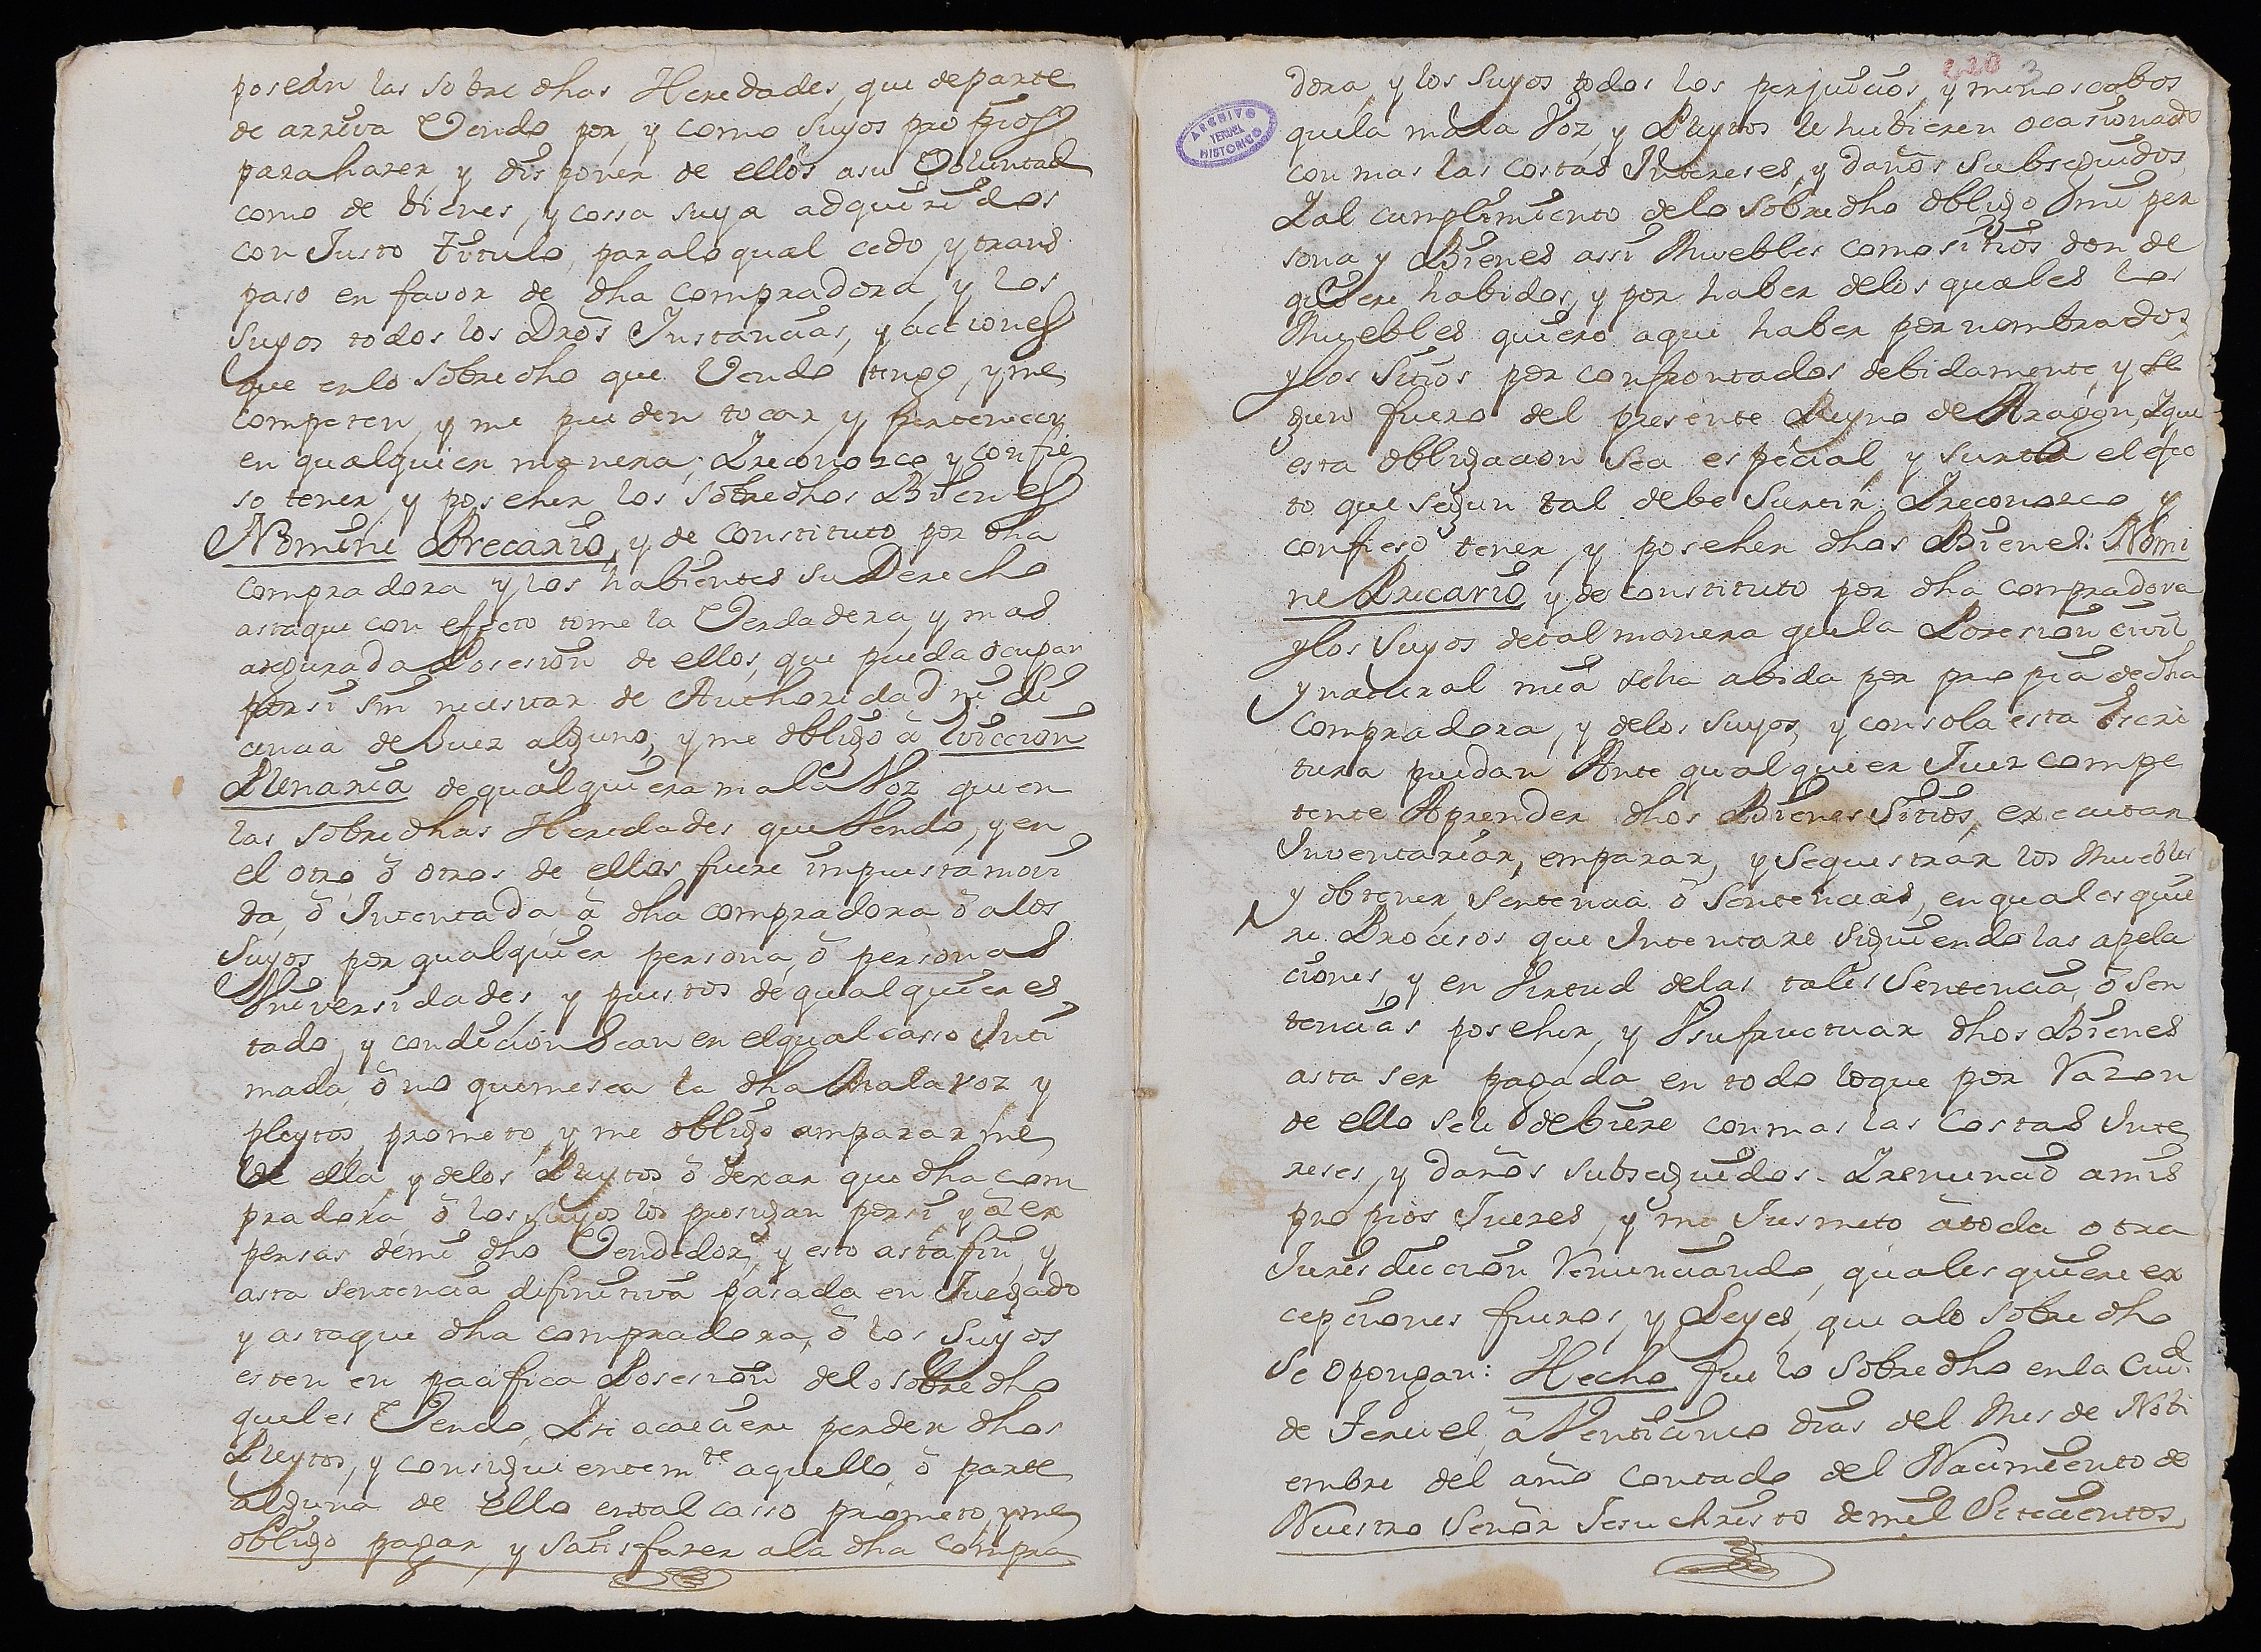 poseán las sobre dhas Heredades, que departe
de arriva Vendo por, y como suyos propios
para hazer, y disponer de ellos asu Voluntad
como de bienes, y cossa suya adquiridos
con Justo titulo, paraloqual cedo, y trans
paso en favor de dha compradora, y los
suyos todos los Dros Instancias, y acciones
que enlo sobredho que Vendo tengo, y me
competen, y me pueden tocar, y pertenecer
en qualquier manera; Yreconozco, y confie
so tener, y posseher los sobredhos Bienes
Nomine Precario, y de constituto por dha
compradora y los habientes su Derecho
astaque con efecto tome la Verdadera, y mas
asegurada Posesion de ellos, que pueda ocupar
porsi sin necesitar de Authoridad ni li
cencia de Juez alguno, y me obligo â Eviccion
Plenaria dequalquiera mala Voz que en
las sobredhas Heredades que Vendo, y en
el otro, ô otros de ellos fuere impuesta movi
da, ô Intentada, â dha compradora, ô alos
suyos por qualquier persona, ô personas
Universidades, y puestos dequalquier es
tado, y condicion sean en elqual casso Inti
mada, ô no quemesea la dha Mala voz, y
pleytos, prometo, y me obligo ampararme
de ella y delos Pleytos ô dexar que dha com
pradora, ô los suyos los prosigan porsi, y â ex
pensas demi dho Vendedor, y esto asta fin, y
asta sentencia difinitiva pasada en Juzgado
y astaque dha compradora, ô los suyos
esten en pacifica Posesion delosobredho
queles Vendo, Ysi acaeciere perder dhos
Pleytos, y consiguientemte aquello, ô parte
alguna de ello ental casso prometo, y me
obligo pagar, y satisfazer ala dha compra
220 3
dora, y los suyos todos los perjuicios, y menoscabos
quela mala Voz, y Pleytos le hubieren ocasionado
con mas las costas Intereses, y daños subseguidos,
Yal cumplimiento delo sobredho obligo mi per
sona y Bienes assi Muebles como sitios don de
quiere habidos, y por haber delos quales los
Muebles quiero aqui haber por nombrados,
ylos sitios por confrontados debidamente, y se
gun fuero del presente Reyno de Aragon, Yque
esta obligacion sea especial, y surta el efec
to que segun tal debe surtir; Yreconozco y
confieso tener, y posseher dhos Bienes: Nomi
ne Precario y de constituto por dha compradora
ylos suyos detal manera quela Posesion civil
y natural mia seha abida por propia dedha
compradora, y delos suyos, y consola esta Escri
tura puedan Ante qualquier Juez compe
tente Aprender dhos Bienes Sitios, executar
Inventariar, emparar, y sequestrar los Muebles
y obtener sentencia ô sentencias, en qualesquie
re Procesos que Intentare siguiendo las apela
ciones, y en Virtud delas tales sentencia, ô sen
tencias posseher, y Usufructuar dhos Bienes
asta ser pagada en todo loque por Razon
de ello sele debiere con mas las costas Inte
reses, y daños subseguidos. Yrenuncio amis
propios Juezes, y me Jusmeto âtoda otra
Jurisdiccion Renunciando, qualesquiere ex
cepciones fueros, y Leyes, que alo sobredho
se opongan: Hecho fue lo sobredho enla Ciud.
de Teruel, â Venticinco dias del Mes de Nobi
embre del año contado del Nacimiento de
Nuestro Señor Jesuchristo demil Setecientos
ARCHIVO
TERUEL
HISTORICO